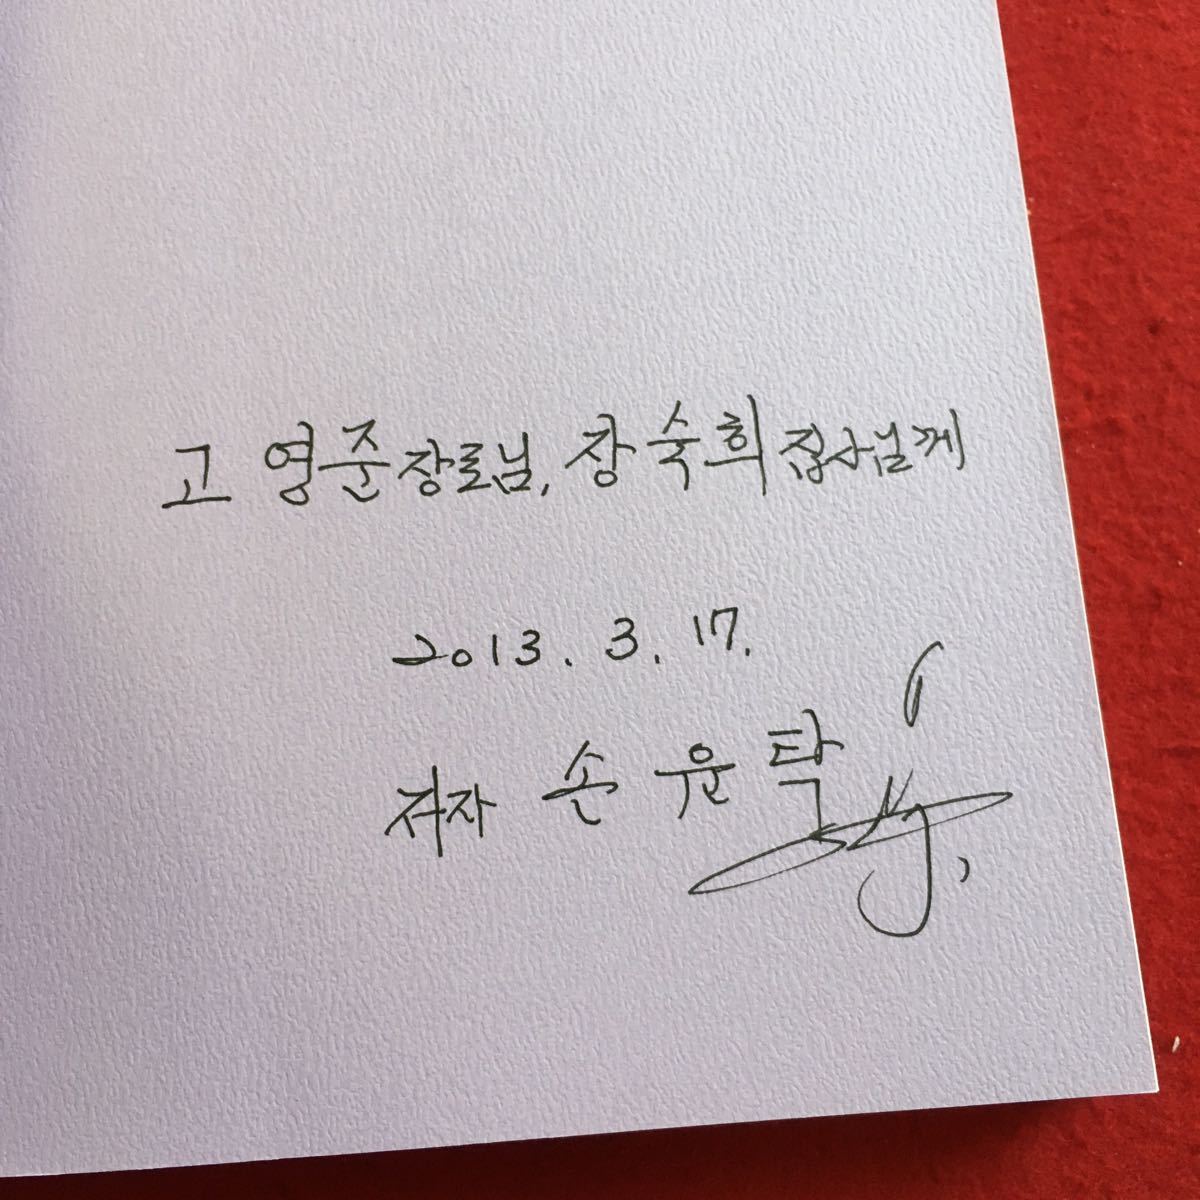 고영준장로님, 장숙희집사님께
2013. 3. 17.
저자 손윤탁